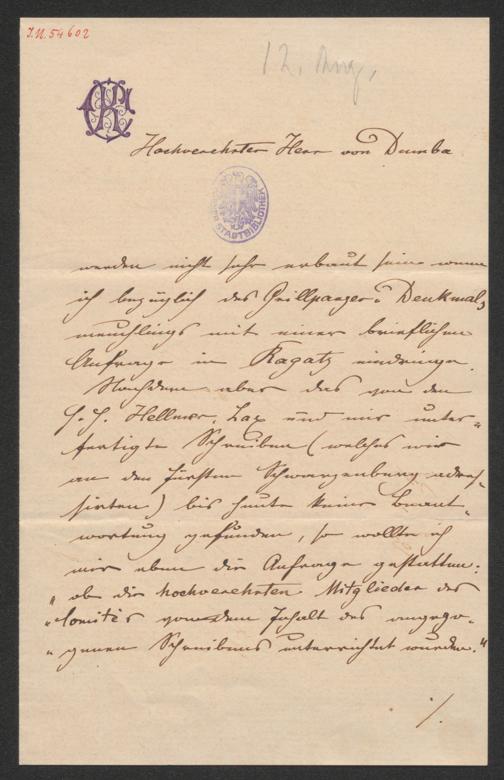 J.N. 54602
12. Aug.
Hochverehrter Herr von Dumba
STADTBIBLIOTHEK
werden nicht sehr erbaut sein wenn
ich bezüglich des Grillparzer-Denkmals
meuchlings mit einer brieflichen
Anfrage in Ragatz eindringe.
Nachdem aber das von den
H. H. Hellmer, Lax und mir unter-
fertigte Schreiben (welches wir
an den Fürsten Schwarzenberg adres-
sirten) bis heute keine Beant-
wortung gefunden, so wollte ich
mir eben die Anfrage gestatten:
"ob die hochverehrten Mitglieder des
"Comités von dem Inhalt des angezo-
"genen Schreibens unterrichtet wurden."
./.